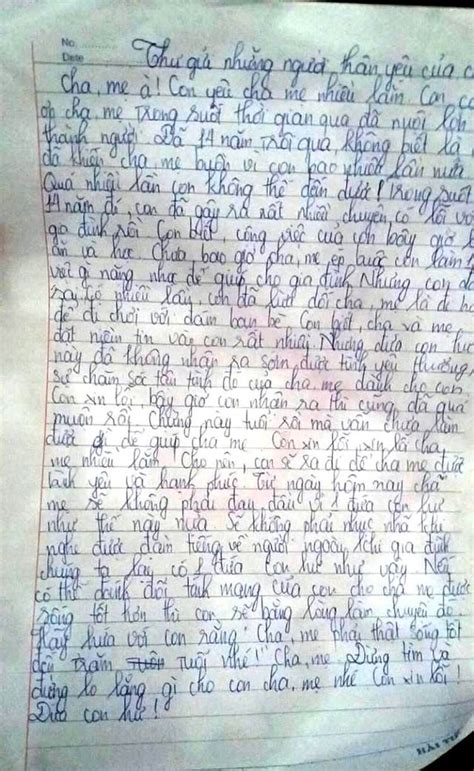 No.
Date
Thư gửi những người thân yêu của c
Cha, mẹ à! Con yêu cha mẹ nhiều lắm Con c
ơn cha, mẹ trong suốt thời gian qua đã nuôi lớn
thành người. Đã 14 năm trôi qua không biết là
đã khiến cha, mẹ buồn vì con bao nhiêu lần nữa
Quá nhiều lần con không thể đếm được! Trong suốt
14 năm đó, con đã gây ra rất nhiều chuyện có lỗi với
gia đình rồi Con biết, công việc của con bây giờ
ăn và học. Chưa bao giờ cha, mẹ ép buộc con làm
việc gì nặng nhọc để giúp cho gia đình Nhưng con đã
nhiều lần, con đã lừa dối cha, mẹ là đi h
để đi chơi với đám bạn bè Con biết, cha và mẹ
đặt niềm tin vào con rất nhiều Nhưng đứa con hư
này đã không nhận ra sớm được tình yêu thương,
sự chăm sóc tận tình đó của cha, mẹ dành cho con
Con xin lỗi, bây giờ con nhận ra thì cũng đã quá
muộn rồi. Chừng này tuổi rồi mà vẫn chưa làm
được gì để giúp cha mẹ Con xin lỗi, xin lỗi cha,
mẹ nhiều lắm. Cho nên, con sẽ ra đi để cha mẹ được
bình yên và hạnh phúc Từ ngày hôm nay cha
mẹ sẽ không phải đau đầu vì 1 đứa con hư
như thế này nữa Sẽ không phải nhục nhã khi
nghe được đàm tiếng về người ngoài khi gia đình
chúng ta lại có 1 đứa con hư như vậy Nếu
có thể đánh đổi tính mạng của con cho cha mẹ được
sống tốt hơn thì con sẽ bằng lòng làm chuyện đó.
Hãy hứa với con rằng "Cha, mẹ phải thật sống tốt
đến trăm tuổi nhé!" Cha, mẹ. Đừng tìm và
đừng lo lắng gì cho con cha, mẹ nhé Con xin lỗi!
Đứa con hư!